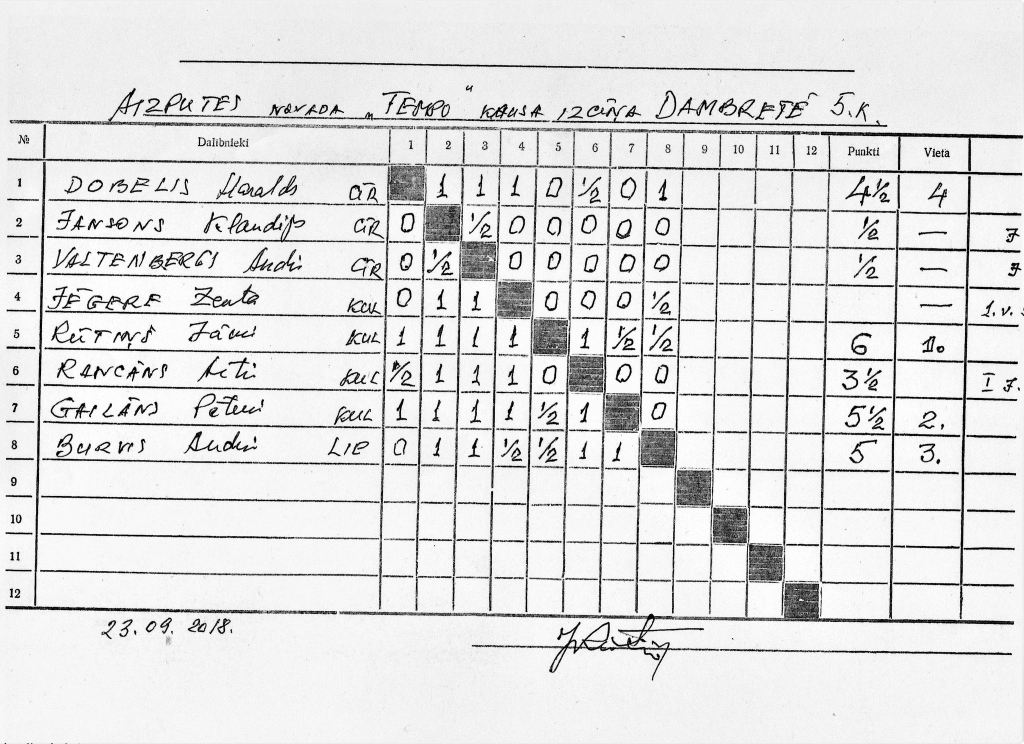 AIZPUTES NOVADA „TEMPO“ KAUSA IZCĪŅA DAMBRETĒ 5.K.
№ Dalībnieki 1 2 3 4 5 6 7 8 9 10 11 12 Punkti Vieta
1 DOBELIS Haralds CĪR 1 1 1 0 ½ 0 1 4½ 4
2 JANSONS Klaudijs CĪR 0 ½ 0 0 0 0 0 ½ — J
3 VALTENBERGS Andri CĪR 0 ½ 0 0 0 0 0 ½ — J
4 JĒGERE Zenta KUL 0 1 1 0 0 0 ½ — 1.v.
5 RŪTIŅŠ Jāni KUL 1 1 1 1 1 ½ ½ 6 1.
6 RANCĀNS KUL ½ 1 1 1 0 0 0 3½ I J.
7 GAILĀNS Pēteri KUL 1 1 1 1 ½ 1 0 5½ 2.
8 BURVIS Andri LIE 0 1 1 ½ ½ 1 1 5 3.
9
10
11
12
23.09.2018.